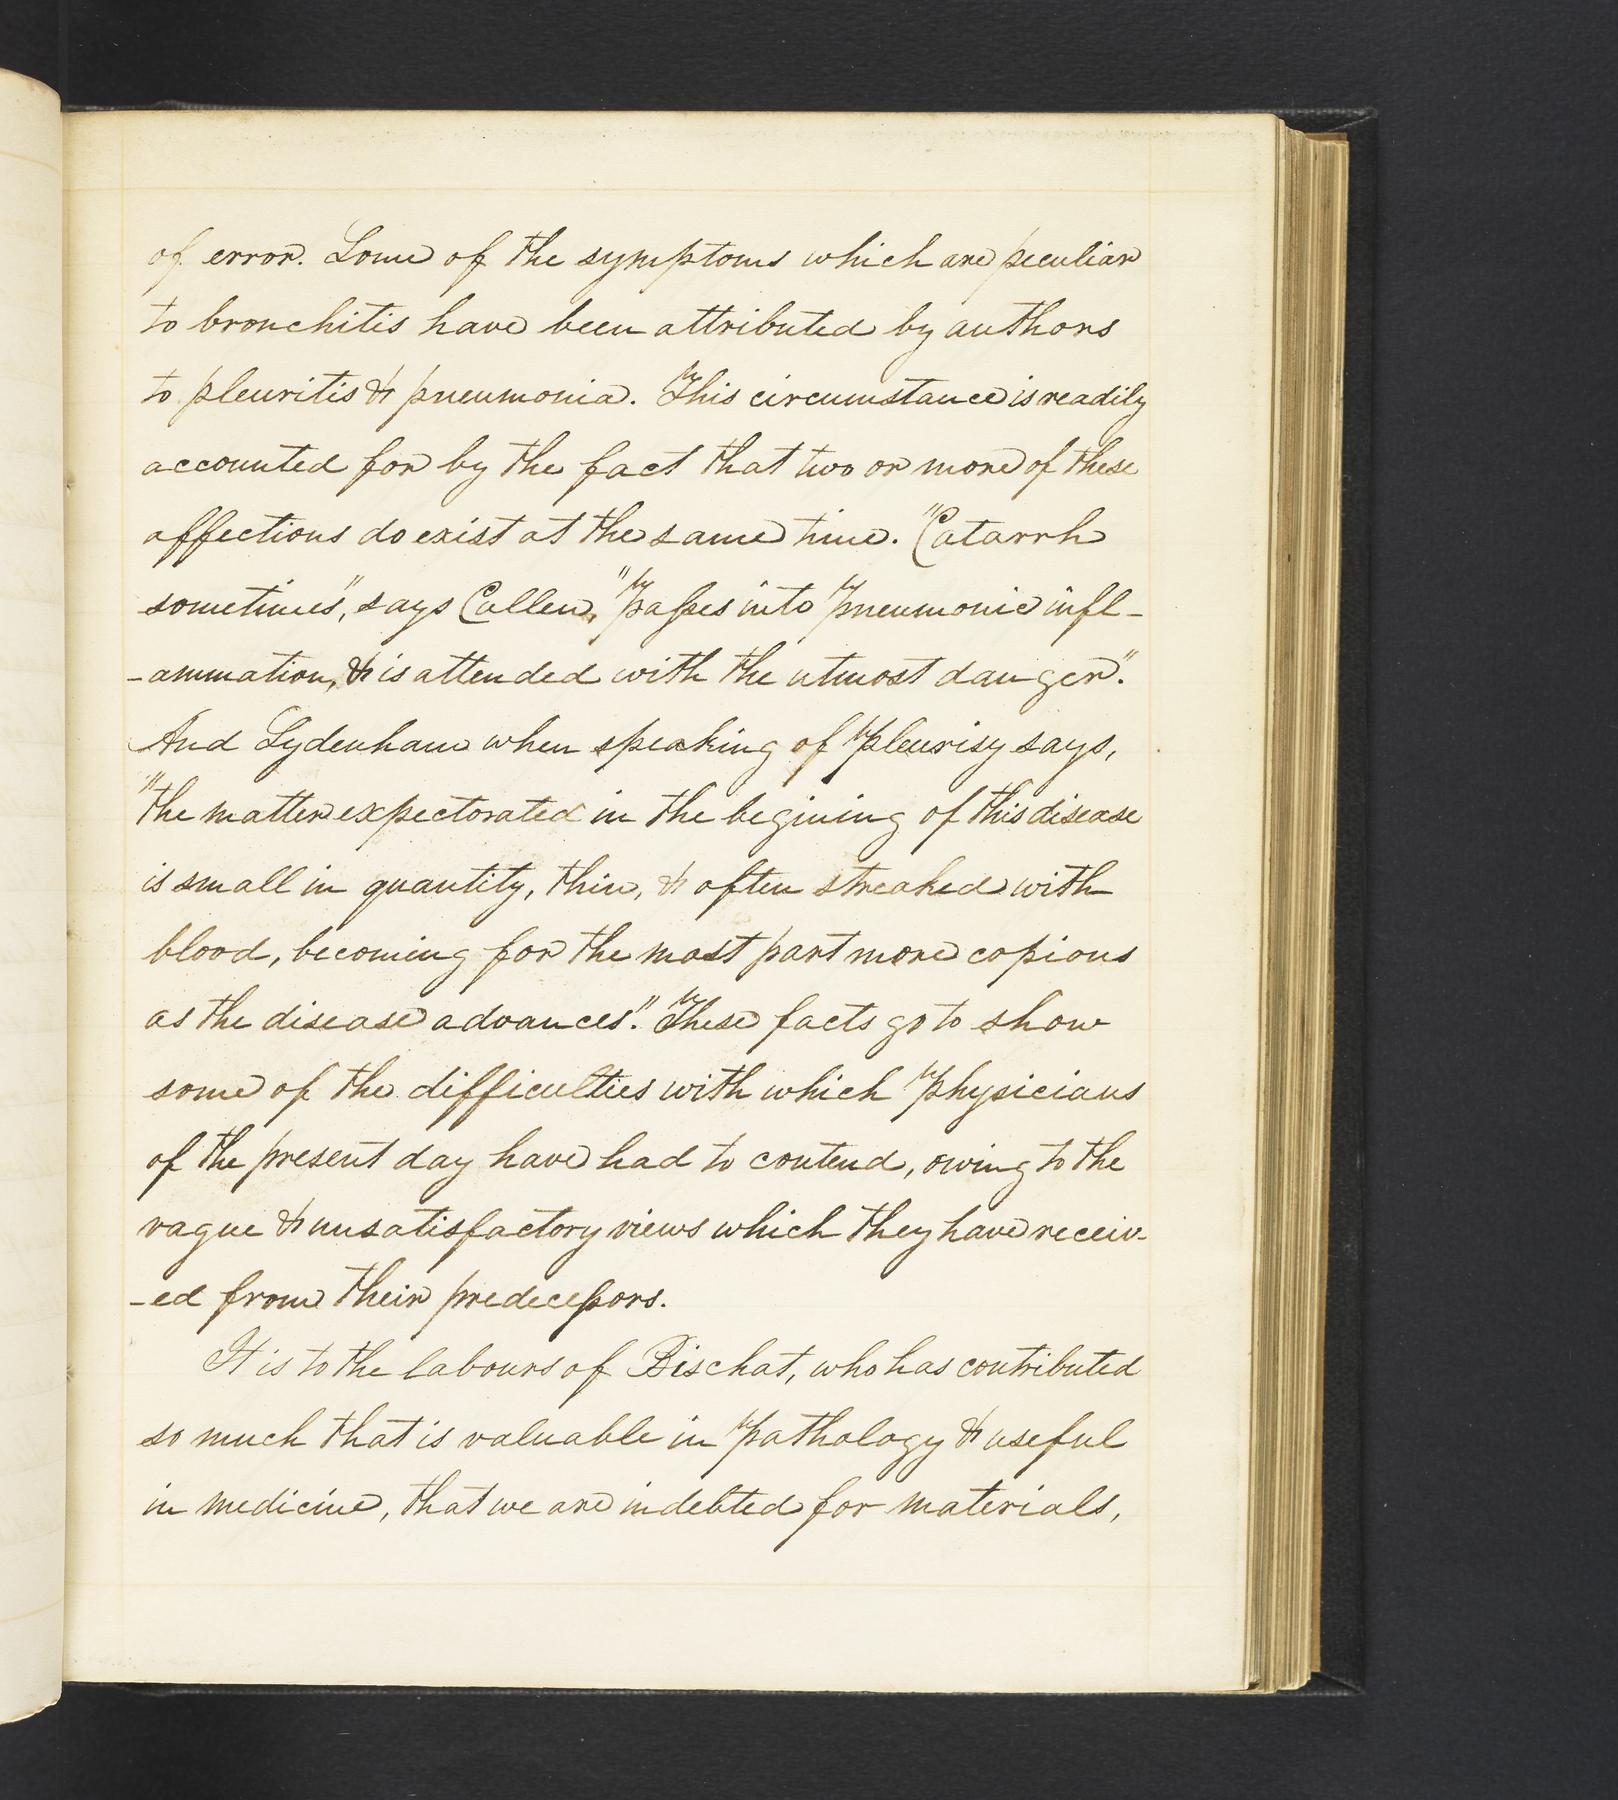 of error. Some of the symptoms which are peculiar
to bronchitis have been attributed by authors
to pleuritis & pneumonia. This circumstance is readily
accounted for by the fact that two or more of these
affections do exist at the same time. "Catarrh
sometimes", says Cullen, "passes into pneumonic infl-
-ammation, & is attended with the utmost danger".
And Sydenham when speaking of pleurisy says,
"the matter expectorated in the begining of this disease
is small in quantity, thin, & often streaked with
blood, becoming for the most part more copious
as the disease advances". These facts go to show
some of the difficulties with which physicians
of the present day have had to contend, owing to the
vague & unsatisfactory views which they have receiv-
-ed from their predecessors.
It is to the labours of Bischat, who has contributed
so much that is valuable in pathology & useful
in medicine, that we are indebted for materials,